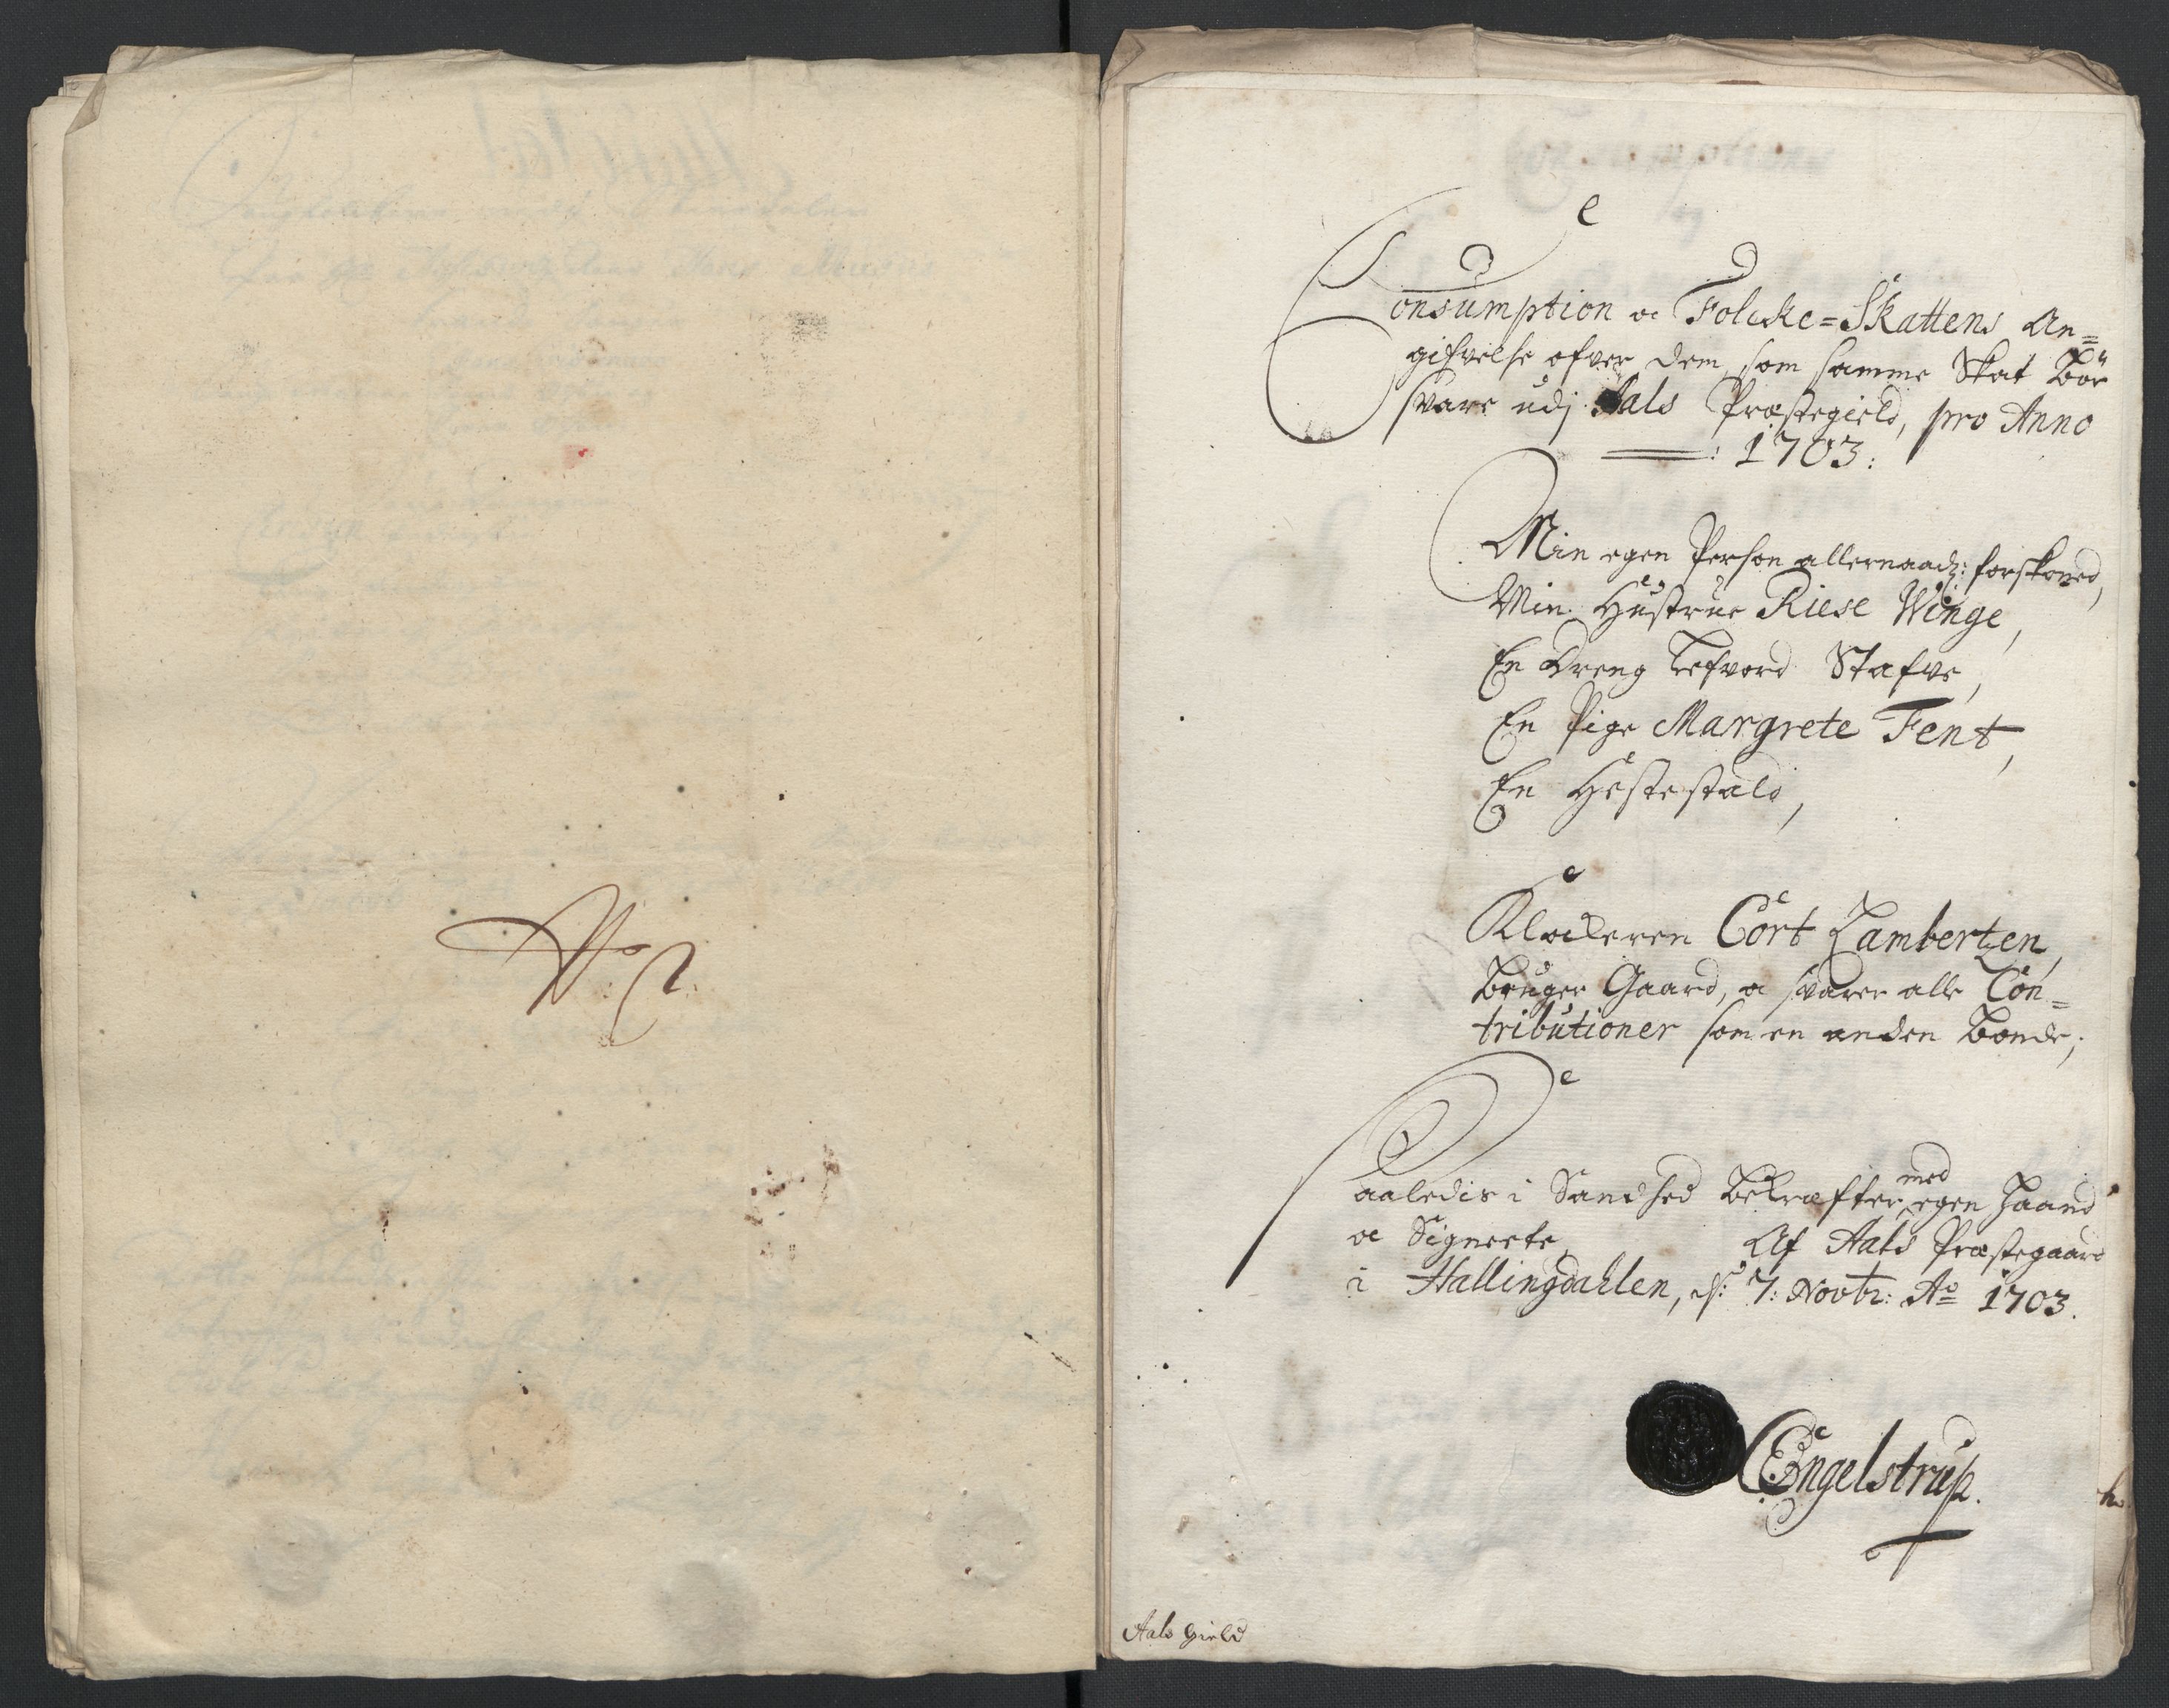 No 2.
Consumption oc Folcke=Skattens An=
gifvelse ofver dem, som samme Skat bör
svare udj Aals Præstegield, pro Anno
: 1703 :
Min egen Person allernaadr: forskoned,
Min Hustrue Riese Winge,
En Dreng Lefvord Stafve,
En Pige Margrete Fent,
En Hestestald,
Klockeren Cort Lambertzen,
bruger Gaard, oc svarer alle Con=
tributioner som en anden Bonde;
Saaledis i Sandhed bekræfter med egen Haand
oc Signete, Af Aals Præstegaard
i Hallingdahlen, d: 7: Novbr: Ao 1703.
Engelstrup.
Aals gield